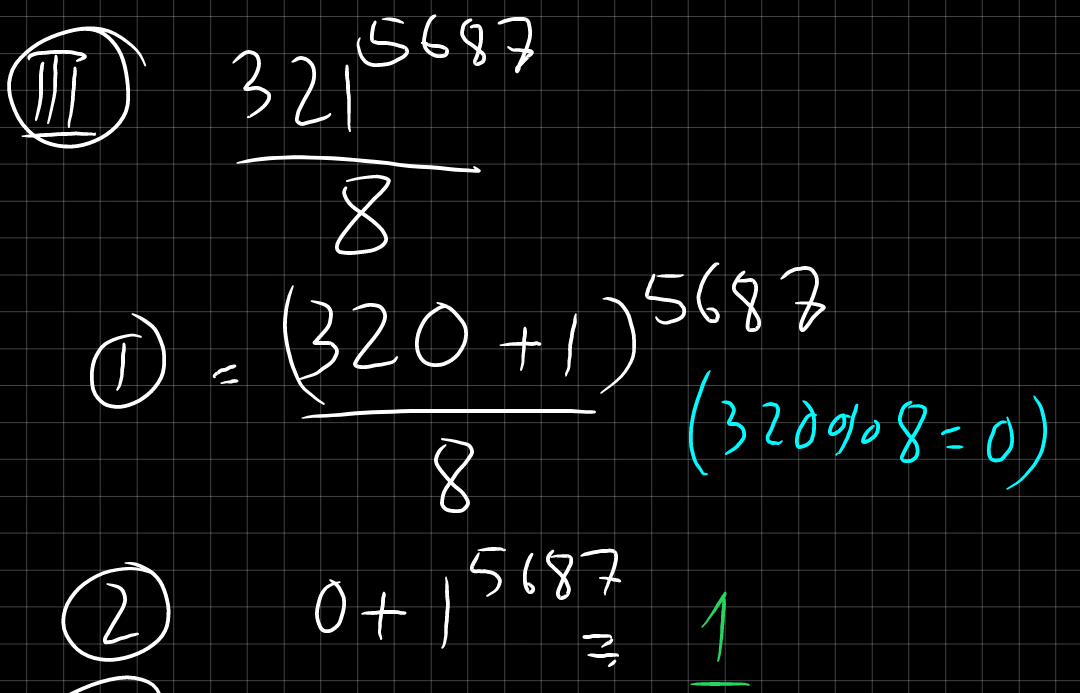 III 321^5687
8
① = (320 + 1)^5687
(320 % 8 = 0)
8
② 0 + 1^5687 = 1